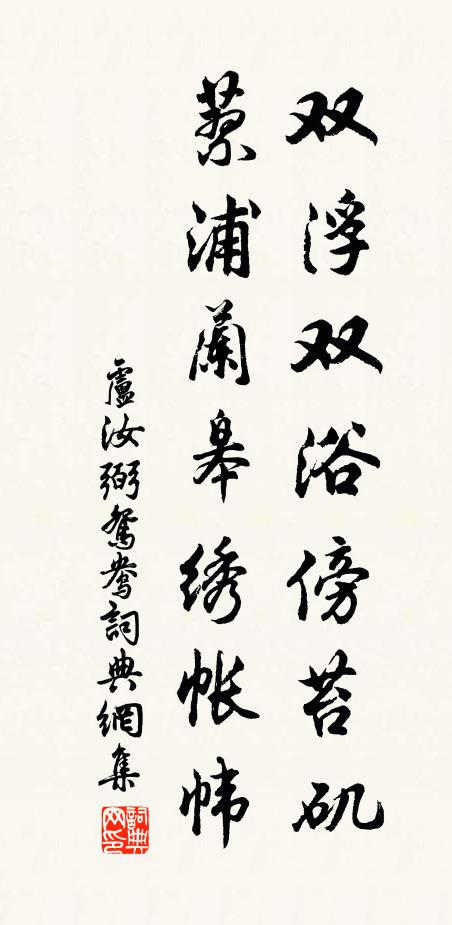 双浮双浴傍苔矶
蓼浦兰皋绣帐帏
盧汝弼鸳鸯詞典網集
詞典
网印